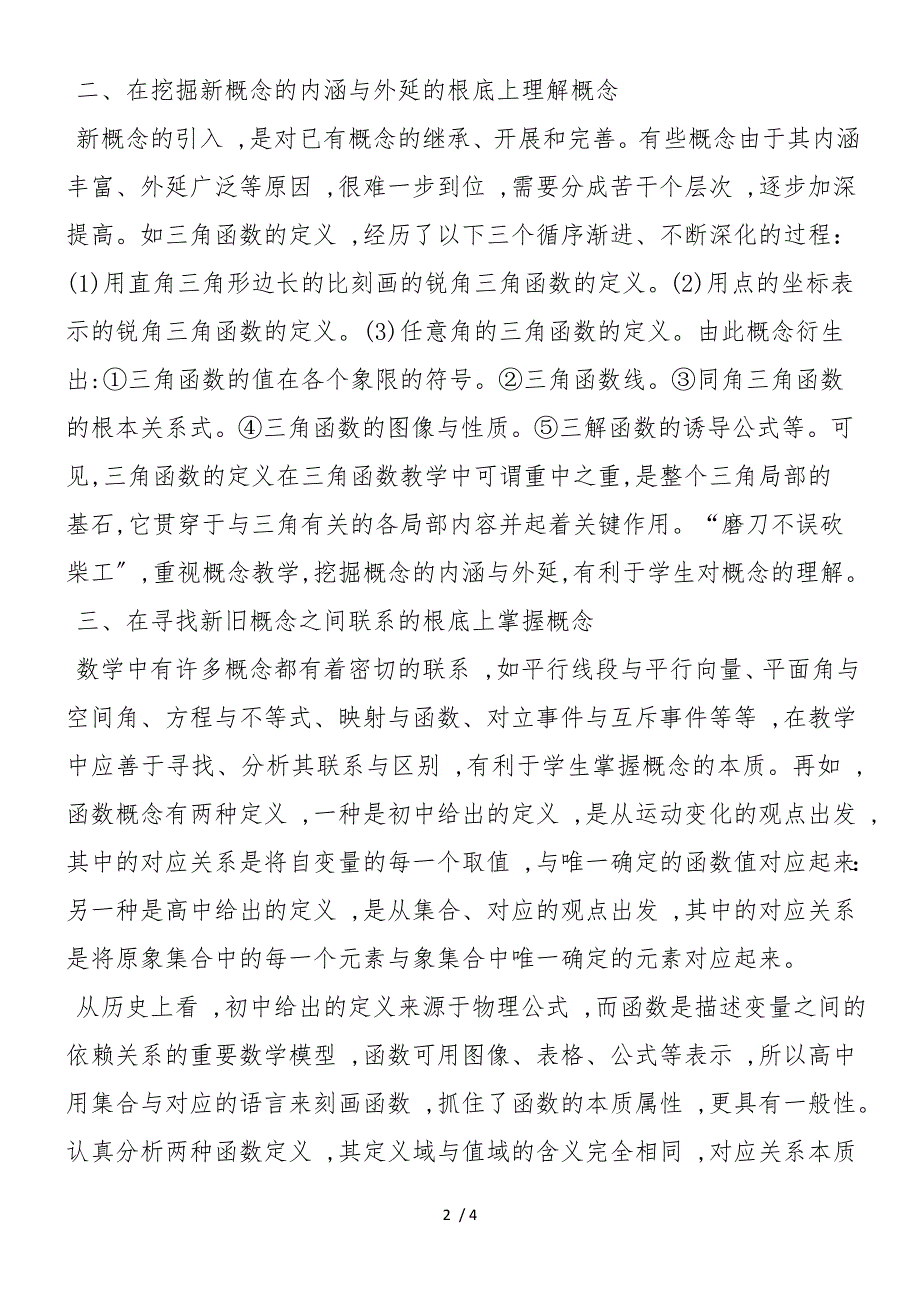 二、在挖掘新概念的内涵与外延的根底上理解概念
新概念的引入 ,是对已有概念的继承、开展和完善。有些概念由于其内涵
丰富、外延广泛等原因 ,很难一步到位 ,需要分成苦干个层次 ,逐步加深
提高。如三角函数的定义 ,经历了以下三个循序渐进、不断深化的过程：
(1)用直角三角形边长的比刻画的锐角三角函数的定义。(2)用点的坐标表
示的锐角三角函数的定义。(3)任意角的三角函数的定义。由此概念衍生
出:①三角函数的值在各个象限的符号。②三角函数线。③同角三角函数
的根本关系式。④三角函数的图像与性质。⑤三解函数的诱导公式等。可
见,三角函数的定义在三角函数教学中可谓重中之重,是整个三角局部的
基石,它贯穿于与三角有关的各局部内容并起着关键作用。“磨刀不误砍
柴工〞,重视概念教学,挖掘概念的内涵与外延,有利于学生对概念的理解。
三、在寻找新旧概念之间联系的根底上掌握概念
数学中有许多概念都有着密切的联系 ,如平行线段与平行向量、平面角与
空间角、方程与不等式、映射与函数、对立事件与互斥事件等等 ,在教学
中应善于寻找、分析其联系与区别 ,有利于学生掌握概念的本质。再如 ,
函数概念有两种定义 ,一种是初中给出的定义 ,是从运动变化的观点出发 ,
其中的对应关系是将自变量的每一个取值 ,与唯一确定的函数值对应起来：
另一种是高中给出的定义 ,是从集合、对应的观点出发 ,其中的对应关系
是将原象集合中的每一个元素与象集合中唯一确定的元素对应起来。
从历史上看 ,初中给出的定义来源于物理公式 ,而函数是描述变量之间的
依赖关系的重要数学模型 ,函数可用图像、表格、公式等表示 ,所以高中
用集合与对应的语言来刻画函数 ,抓住了函数的本质属性 ,更具有一般性。
认真分析两种函数定义 ,其定义域与值域的含义完全相同 ,对应关系本质
2 / 4